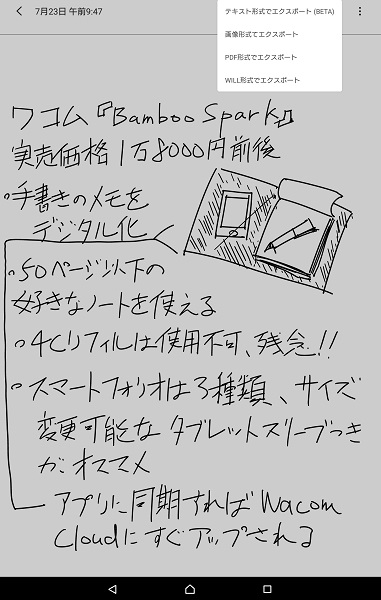 7月23日 午前9:47
テキスト形式でエクスポート (BETA)
画像形式でエクスポート
PDF形式でエクスポート
WILL形式でエクスポート
ワコム『Bamboo Spark』
実売価格1万8000円前後
・手書きのメモを
デジタル化
・50ページ以下の
好きなノートを使える
・4Cリフィルは使用不可、残念!!
・スマートフォリオは3種類、サイズ
変更可能なタブレットスリーブつき
がオススメ
アプリに同期すればWacom
Cloudにすぐアップされる